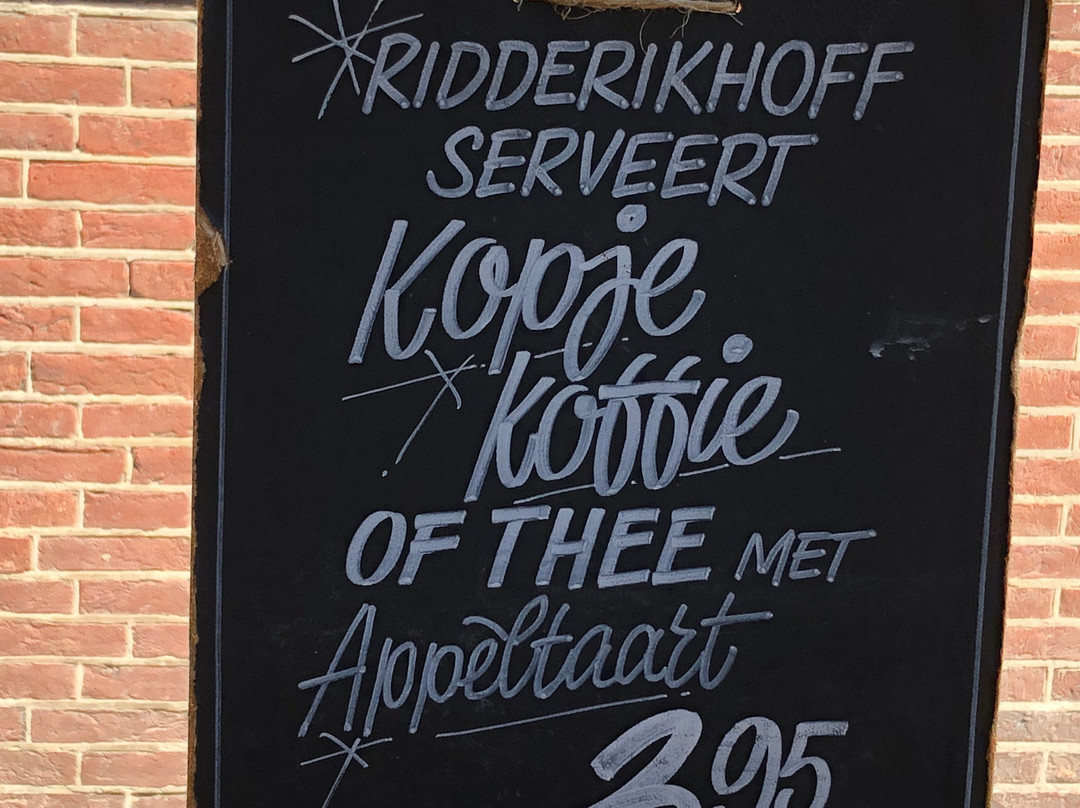 RIDDERIKHOFF
SERVEERT
Kopje
koffie
OF THEE MET
Appeltaart
3,95